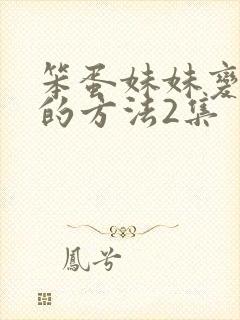 笨蛋妹妹
的方法2集
鳳兮